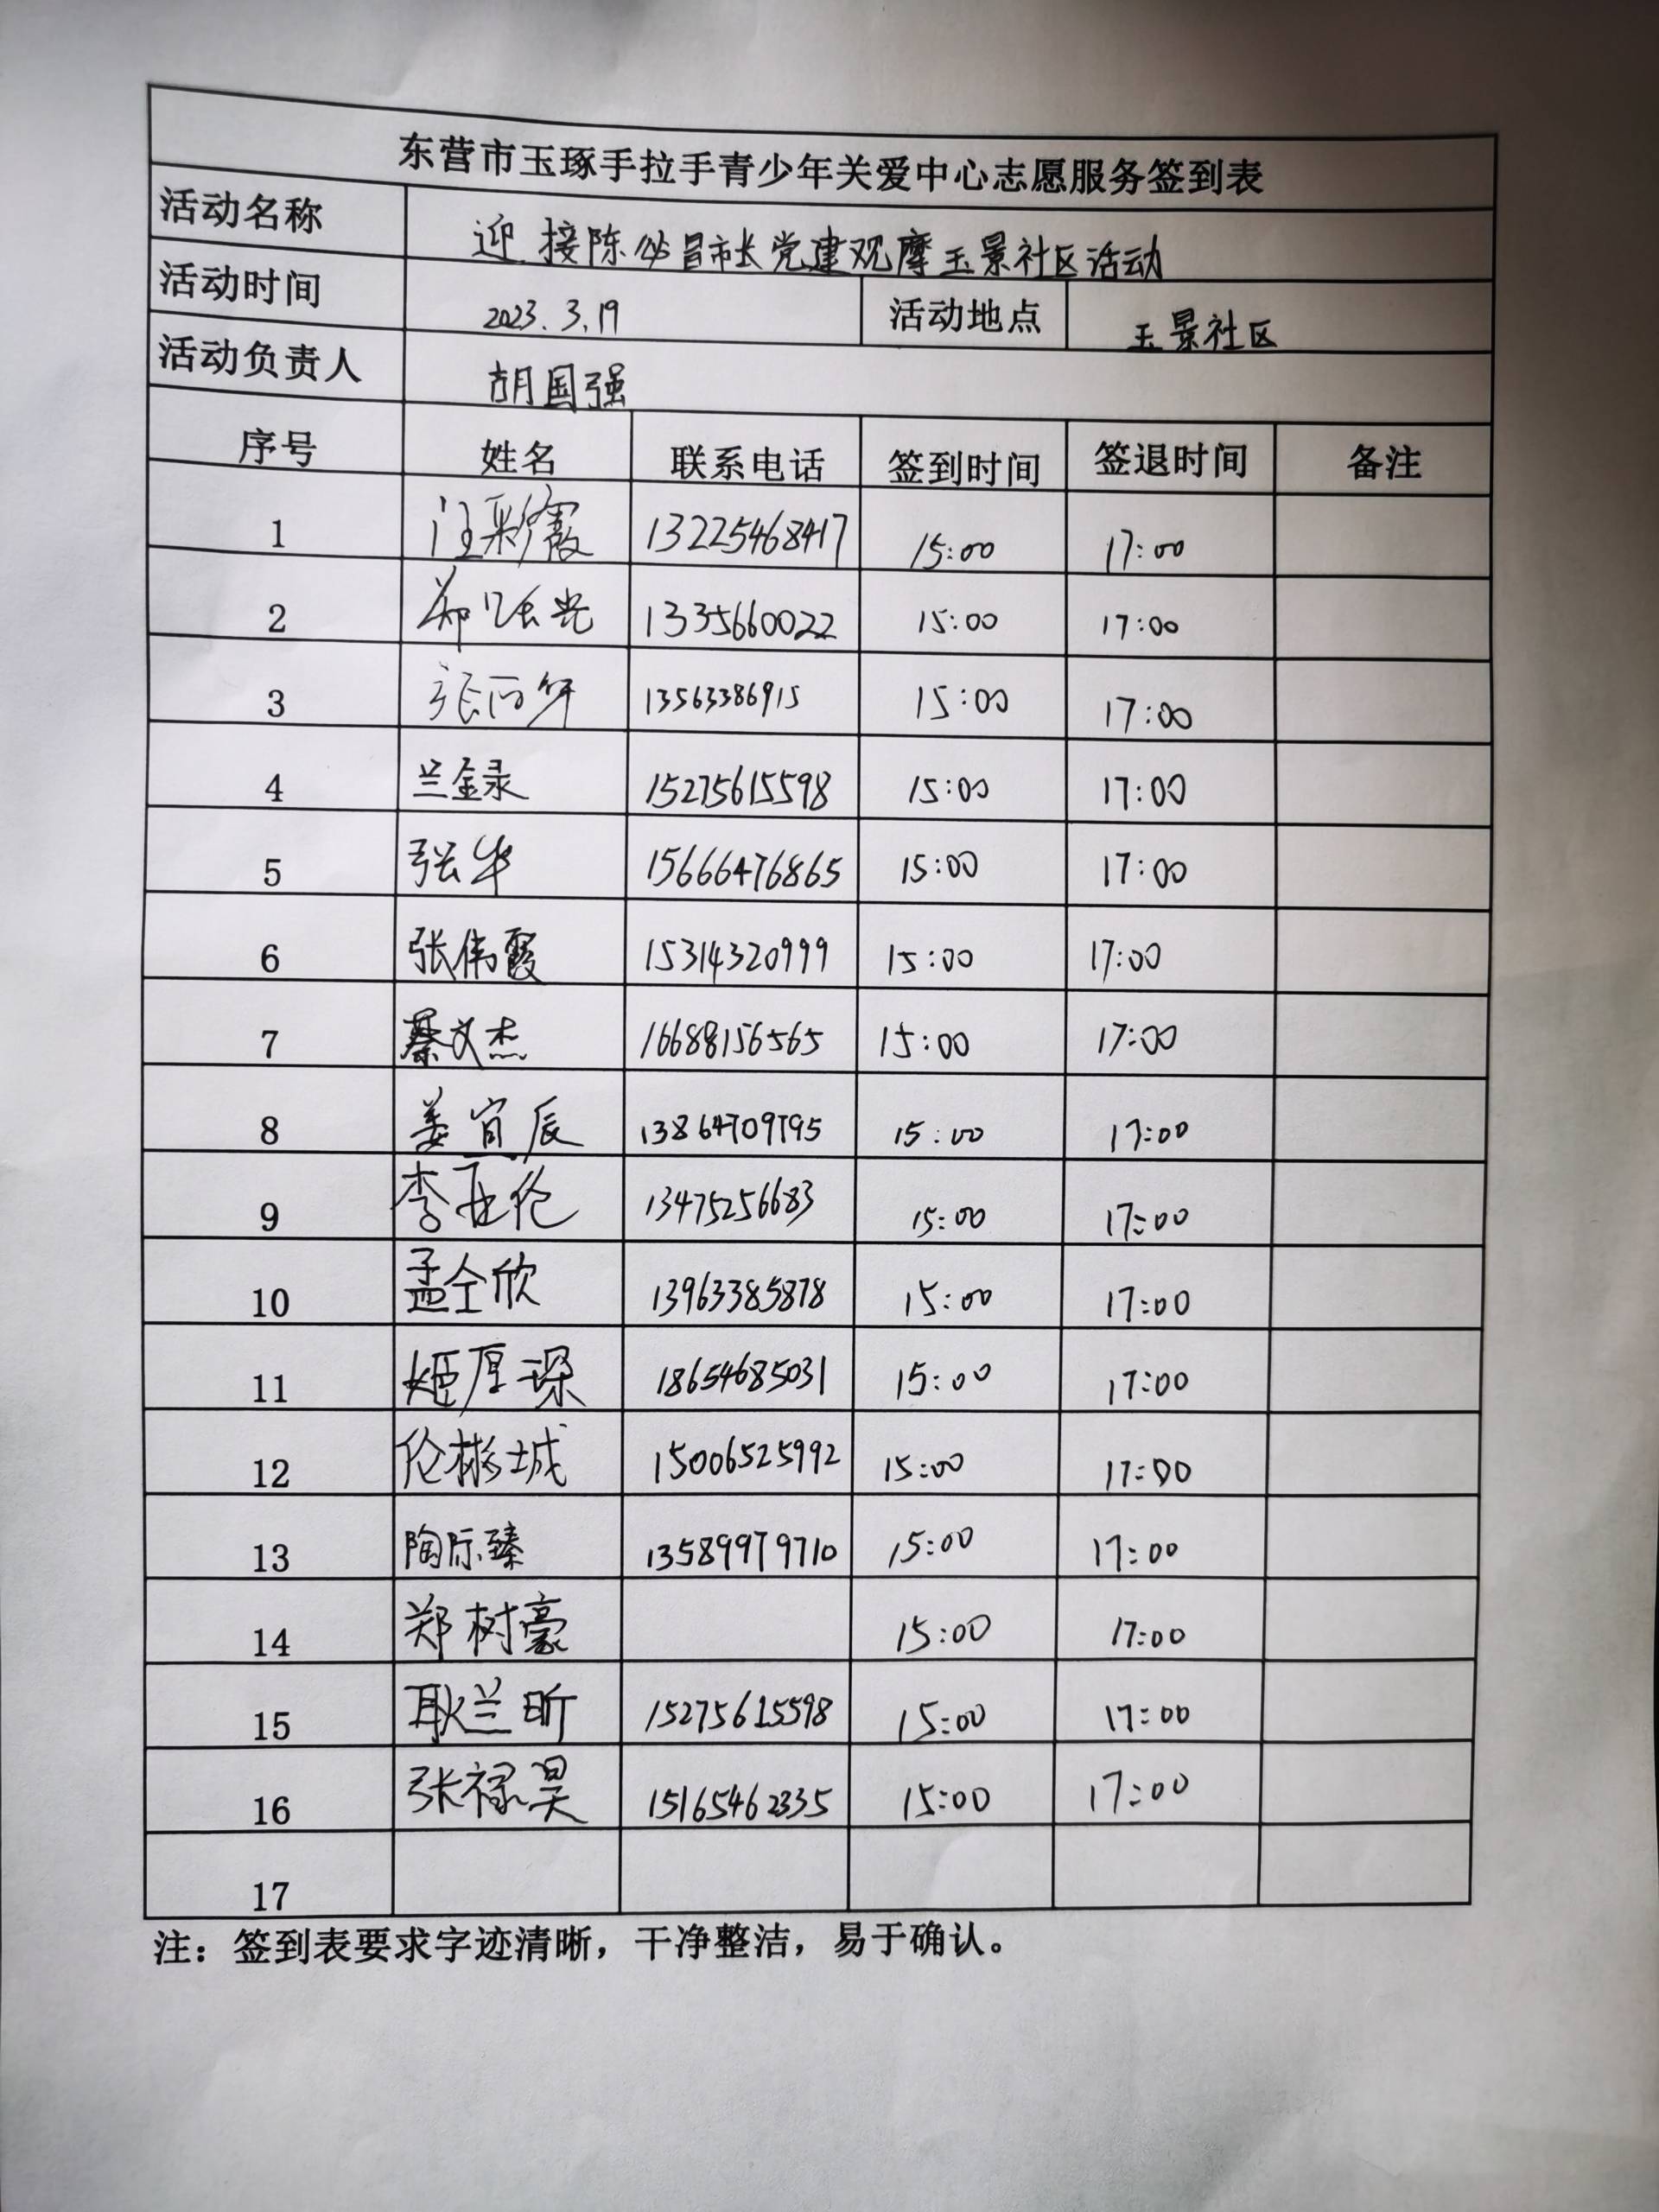 东营市玉琢手拉手青少年关爱中心志愿服务签到表
活动名称 迎接陈必昌市长党建观摩玉景社区活动
活动时间 2023.3.19 活动地点 玉景社区
活动负责人 胡国强
序号 姓名 联系电话 签到时间 签退时间 备注
1 汪彩霞 13225468417 15:00 17:00
2 郑 1335660022 15:00 17:00
3 张 13563386915 15:00 17:00
4 兰金录 15275615598 15:00 17:00
5 张华 15666476865 15:00 17:00
6 张伟霞 15314320999 15:00 17:00
7 蔡文杰 16688156565 15:00 17:00
8 姜宜辰 13864709795 15:00 17:00
9 李亚伦 13475256683 15:00 17:00
10 孟仝欣 13963385878 15:00 17:00
11 姬厚琛 18654685031 15:00 17:00
12 伦彬城 15006525992 15:00 17:00
13 陶际臻 13589979710 15:00 17:00
14 郑树豪 15:00 17:00
15 耿兰昕 15275615598 15:00 17:00
16 张禄昊 15165462335 15:00 17:00
17
注：签到表要求字迹清晰，干净整洁，易于确认。